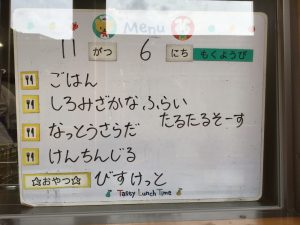 Menu
11 がつ 6 にち もくようび
ごはん
しろみざかなふらい
たるたるそーす
なっとうさらだ
けんちんじる
☆おやつ☆ びすけっと
Tasty Lunch Time